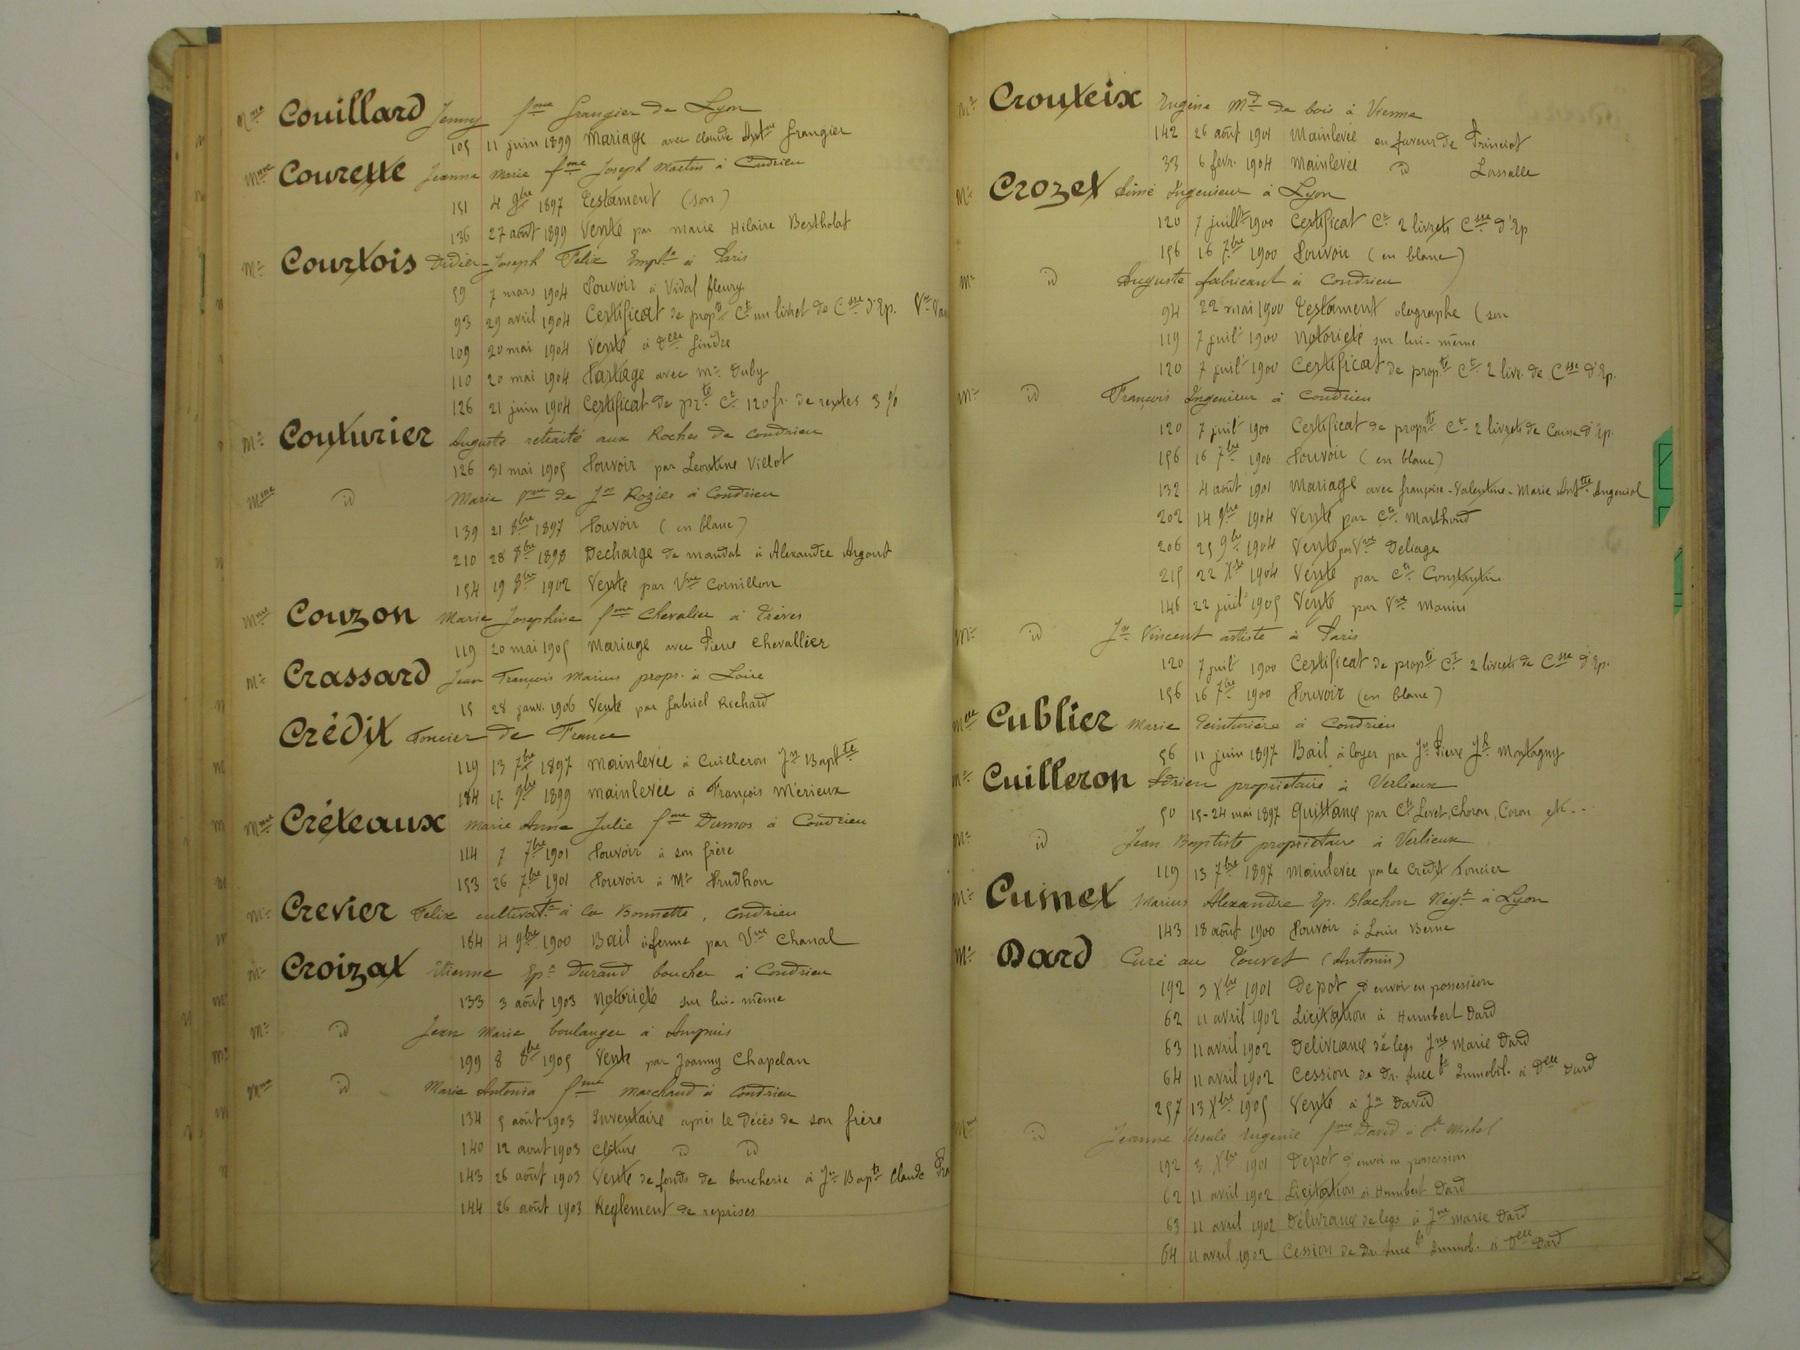 Mme Couillard Jenny fme Grangier de Lyon
105 11 juin 1899 Mariage avec Claude Antne Grangier
Mme Courette Jeanne Marie fme Joseph Martin à Condrieu
151 4 9bre 1897 Testament (son)
136 27 août 1899 Vente par Marie Hilaire Bertholat
Mr Courtois Didier-Joseph Félix Empl. à Paris
59 7 mars 1904 Pouvoir à Vidal fleury
93 29 avril 1904 Certificat de propté Ct un livret de Csse d'Ep.
109 20 mai 1904 Vente à Delle Gindre
110 20 mai 1904 Partage avec Mr Duby
126 21 juin 1904 Certificat de prté Ct 120 fr. de rentes 3 %
Mr Couturier Auguste retraité aux Roches de Condrieu
126 31 mai 1905 Pouvoir par Léontine Villot
Mme id Marie fme de Jn Rozier à Condrieu
139 21 8bre 1897 Pouvoir (en blanc)
210 28 8bre 1898 Decharge de mandat à Alexandre Argout
154 19 8bre 1902 Vente par Vve Cornillon
Mme Couzon Marie Joséphine fme Chevalier à Trèves
119 20 mai 1905 Mariage avec Pierre Chevallier
Mr Crassard Jean François Marius propr. à Loire
15 28 janv. 1906 Vente par Gabriel Richard
Crédit Foncier de France
119 13 7bre 1897 Mainlevée à Cuilleron Jn Baptte
184 17 9bre 1899 Mainlevée à François Mérieux
Mme Créteaux Marie Anne Julie fme Dumas à Condrieu
114 7 7bre 1901 Pouvoir à son frère
153 26 7bre 1901 Pouvoir à Mr Prudhon
Mr Crevier Félix cultivatr à la Bonnette, Condrieu
184 4 9bre 1900 Bail à ferme par Vve Chanal
Mr Croizat Etienne Ep. Durand boucher à Condrieu
133 3 août 1903 Notoriété sur lui-même
Mr id Jean Marie boulanger à Ampuis
199 8 8bre 1905 Vente par Joanny Chapelan
Mme id Marie Antonia fme Marchand à Condrieu
134 5 août 1903 Inventaire après le décès de son frère
140 12 août 1903 Clôture id id
143 26 août 1903 Vente de fonds de boucherie à Jn Bapte Claude
144 26 août 1903 Règlement de reprises
Mr Crouteix Eugène Md de bois à Vienne
142 26 août 1901 Mainlevée en faveur de Princiot
33 6 fevr. 1904 Mainlevée id Lassalle
Mr Crozet Aimé Ingenieur à Lyon
120 7 juillt 1900 Certificat Ct 2 livrets Csse d'Ep
156 16 7bre 1900 Pouvoir (en blanc)
Mr id Auguste fabricant à Condrieu
94 22 mai 1900 Testament olographe (son
119 7 juilt 1900 Notoriété sur lui-même
120 7 juilt 1900 Certificat de propté Ct 2 livr. de Csse d'Ep.
Mr id François Ingenieur à Condrieu
120 7 juilt 1900 Certificat de propté Ct 2 livrets de Caisse d'Ep.
156 16 7bre 1900 Pouvoir (en blanc)
132 4 août 1901 Mariage avec françoise-Valentine-Marie Anttte
202 14 9bre 1904 Vente par Ct Marthoud
206 25 9bre 1904 Vente par Vve Deliage
215 22 Xbre 1904 Vente par Ct Constantin
146 22 juilt 1905 Vente par Vve Manin
Mr id Jn Vincent artiste à Paris
120 7 juilt 1900 Certificat de propté Ct 2 livrets de Csse d'Ep.
156 16 7bre 1900 Pouvoir (en blanc)
Mme Cublier Marie Teinturière à Condrieu
56 11 juin 1897 Bail à loyer par Jn Pierre Jh Montagny
Mr Cuilleron Adrien propriétaire à Verlieux
50 15-24 mai 1897 Quittance par Cts Levet, Choron, Coron etc..
Mr id Jean Baptiste propriétaire à Verlieux
119 13 7bre 1897 Mainlevée par le Crédit Foncier
Mr Cumet Marius Alexandre Ep. Blachon Négt à Lyon
143 18 août 1900 Pouvoir à Louis Berne
Mr Dard Curé au Touvet (Antonin)
192 3 Xbre 1901 Depot d'envoi en possession
62 11 avril 1902 Licitation à Humbert Dard
63 11 avril 1902 Delivrance de legs Jne Marie Dard
64 11 avril 1902 Cession de Dr. succ. Immobil. à Delle Dard
257 13 Xbre 1905 Vente à Jn David
Mme id Jeanne Ursule Eugénie fme David à St Michel
192 3 Xbre 1901 Depot d'envoi en possession
62 11 avril 1902 Licitation à Humbert Dard
63 11 avril 1902 Délivrance de legs à Jne Marie Dard
64 11 avril 1902 Cession de Dr. succ. Immob. à Delle Dard